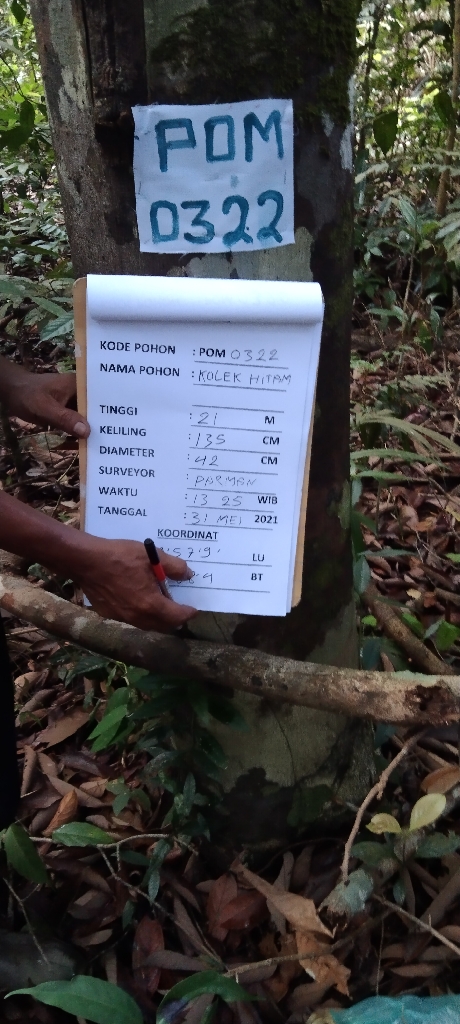 POM
0322
KODE POHON : POM 0322
NAMA POHON : KOLEK HITAM
TINGGI : 21 M
KELILING : 135 CM
DIAMETER : 42 CM
SURVEYOR : PARMAN
WAKTU : 13 25 WIB
TANGGAL : 31 MEI 2021
KOORDINAT
LU
BT